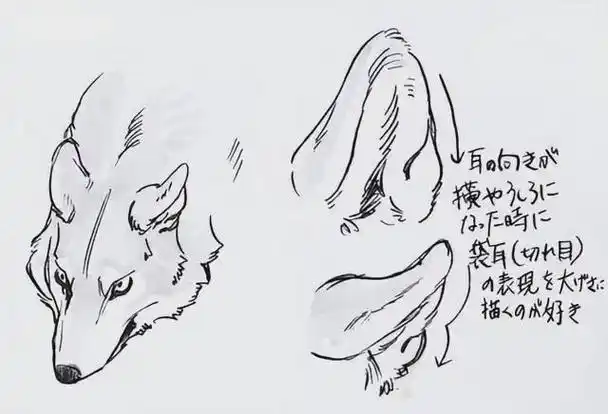 耳の向きが
横やうしろに
なった時に
袋耳(切れ目)
の表現を大げさに
描くのが好き